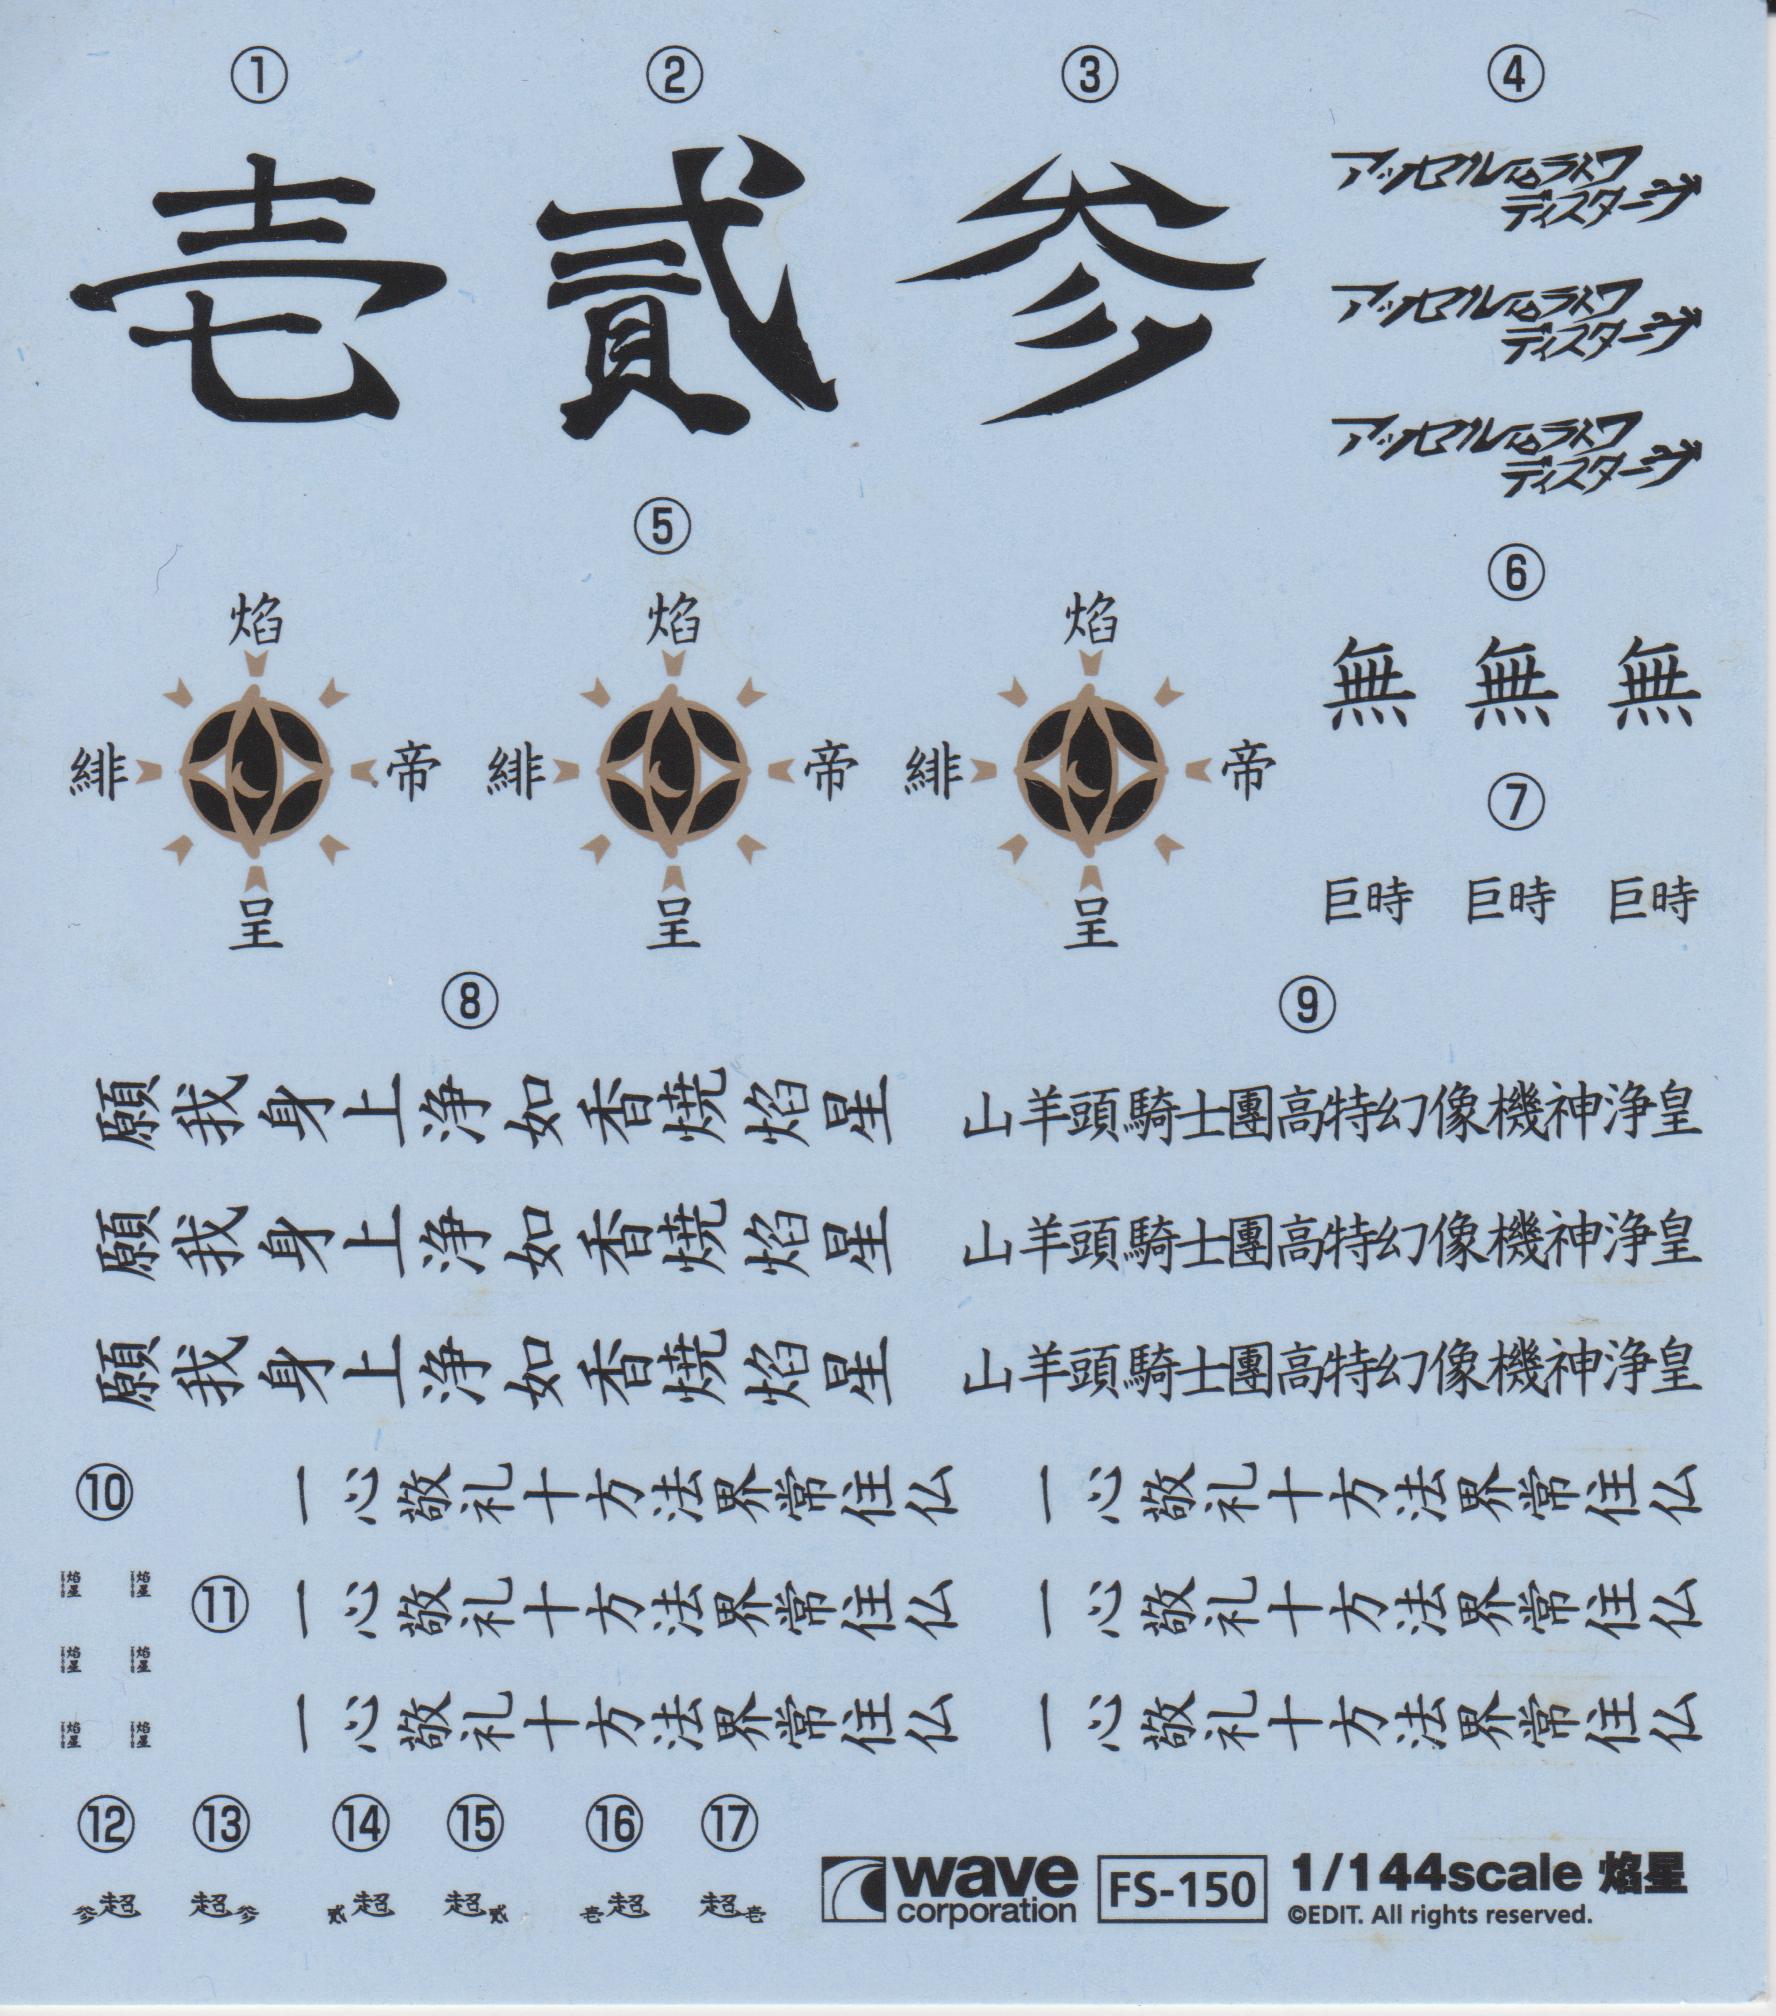 ① ② ③ ④
壱 貳 参
アッセルムラトワ
ディスターヴ
アッセルムラトワ
ディスターヴ
アッセルムラトワ
ディスターヴ
⑤
焔 焔 焔
緋 帝 緋 帝 緋 帝
呈 呈 呈
⑥
無 無 無
⑦
巨時 巨時 巨時
⑧ ⑨
願我身上浄如香焼焔星 山羊頭騎士團高特幻像機神浄皇
願我身上浄如香焼焔星 山羊頭騎士團高特幻像機神浄皇
願我身上浄如香焼焔星 山羊頭騎士團高特幻像機神浄皇
⑩
焔星 焔星
焔星 焔星
焔星 焔星
⑪
一心敬礼十方法界常住仏 一心敬礼十方法界常住仏
一心敬礼十方法界常住仏 一心敬礼十方法界常住仏
一心敬礼十方法界常住仏 一心敬礼十方法界常住仏
⑫ ⑬ ⑭ ⑮ ⑯ ⑰
参超 超参 貳超 超貳 壱超 超壱
wave
corporation
FS-150
1/144scale 焔星
©EDIT. All rights reserved.